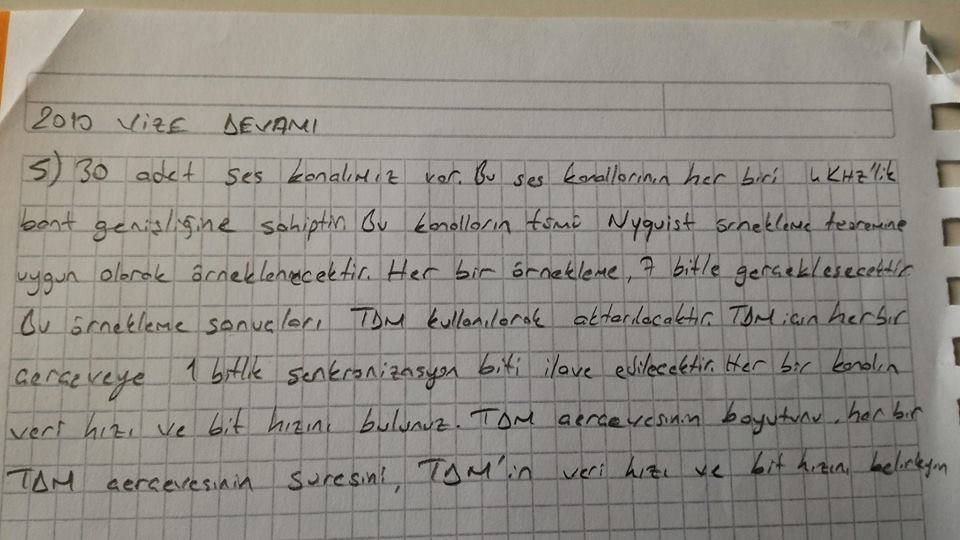 2010 VİZE DEVAMI
5) 30 adet ses kanalımız var. Bu ses kanallarının her biri 4 KHz'lik
bant genişliğine sahiptir. Bu kanalların tümü Nyquist örnekleme teoremine
uygun olarak örneklenecektir. Her bir örnekleme, 7 bitle gerçekleşecektir
Bu örnekleme sonuçları TDM kullanılarak aktarılacaktır. TDM için her bir
çerçeveye 1 bitlik senkronizasyon biti ilave edilecektir. Her bir kanalın
veri hızı ve bit hızını bulunuz. TDM çerçevesinin boyutunu, her bir
TDM çerçevesinin süresini, TDM'in veri hızı ve bit hızını belirleyin